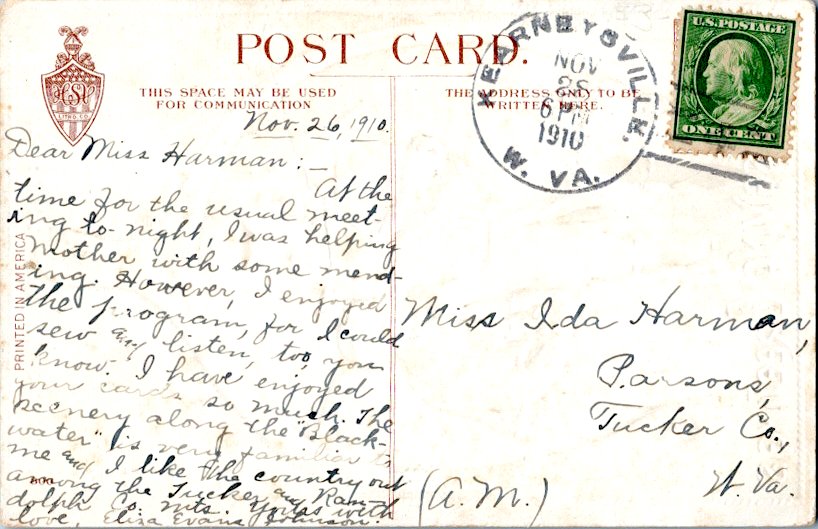 POST CARD.
HSV
LITHO. CO.
THIS SPACE MAY BE USED
FOR COMMUNICATION
THE ADDRESS ONLY TO BE
WRITTEN HERE.
KEARNEYSVILLE
NOV
26
6 PM
1910
W. VA.
U.S. POSTAGE
ONE CENT
PRINTED IN AMERICA
Nov. 26, 1910.
Dear Miss Harman:-
At the
time for the usual meet-
ing to-night, I was helping
Mother with some mend-
ing. However, I enjoyed
the program, for I could
sew and listen, too you
know. I have enjoyed
your cards so much. The
scenery along the "Black-
water" is very familiar to
me and I like the country out
among the Tucker and Ran-
dolph Co. mts. Yours with
love, Eliza Evans Johnson.
Miss Ida Harman,
Parsons,
Tucker Co.,
W. Va.
(A.M.)